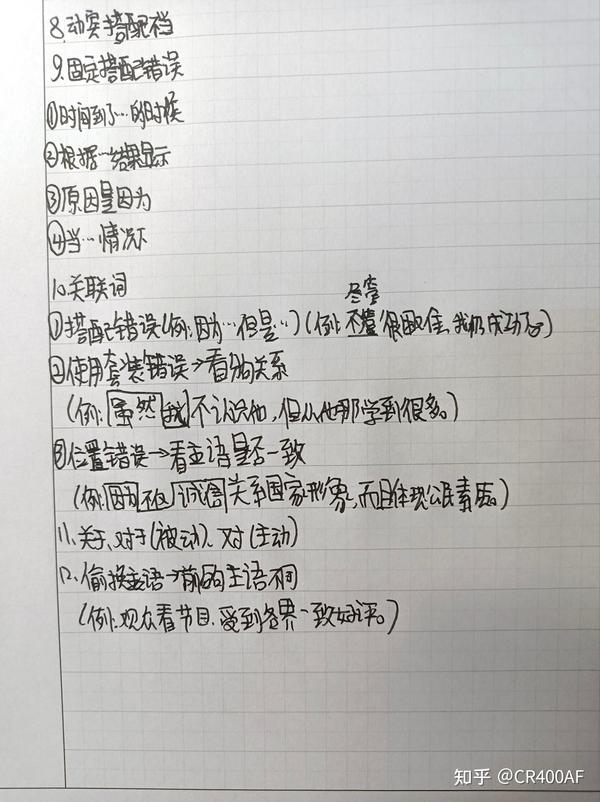 8.动宾搭配档
9.固定搭配错误
①时间到了…的时候
②根据…结果显示
③原因是因为
④当…情况下
10.关联词
尽管
①搭配错误(例:因为…但是…)(例:不管很困难,我仍成功了。)
②使用套装错误→看句关系
(例:虽然我不认识他,但从他那学到很多。)
③位置错误→看主语是否一致
(例:因为不但诚信关系国家形象,而且体现公民素质。)
11.关于、对于(被动)、对(主动)
12.偷换主语→前后句主语不同
(例:观众看节目,受到各界一致好评。)
知乎 @CR400AF